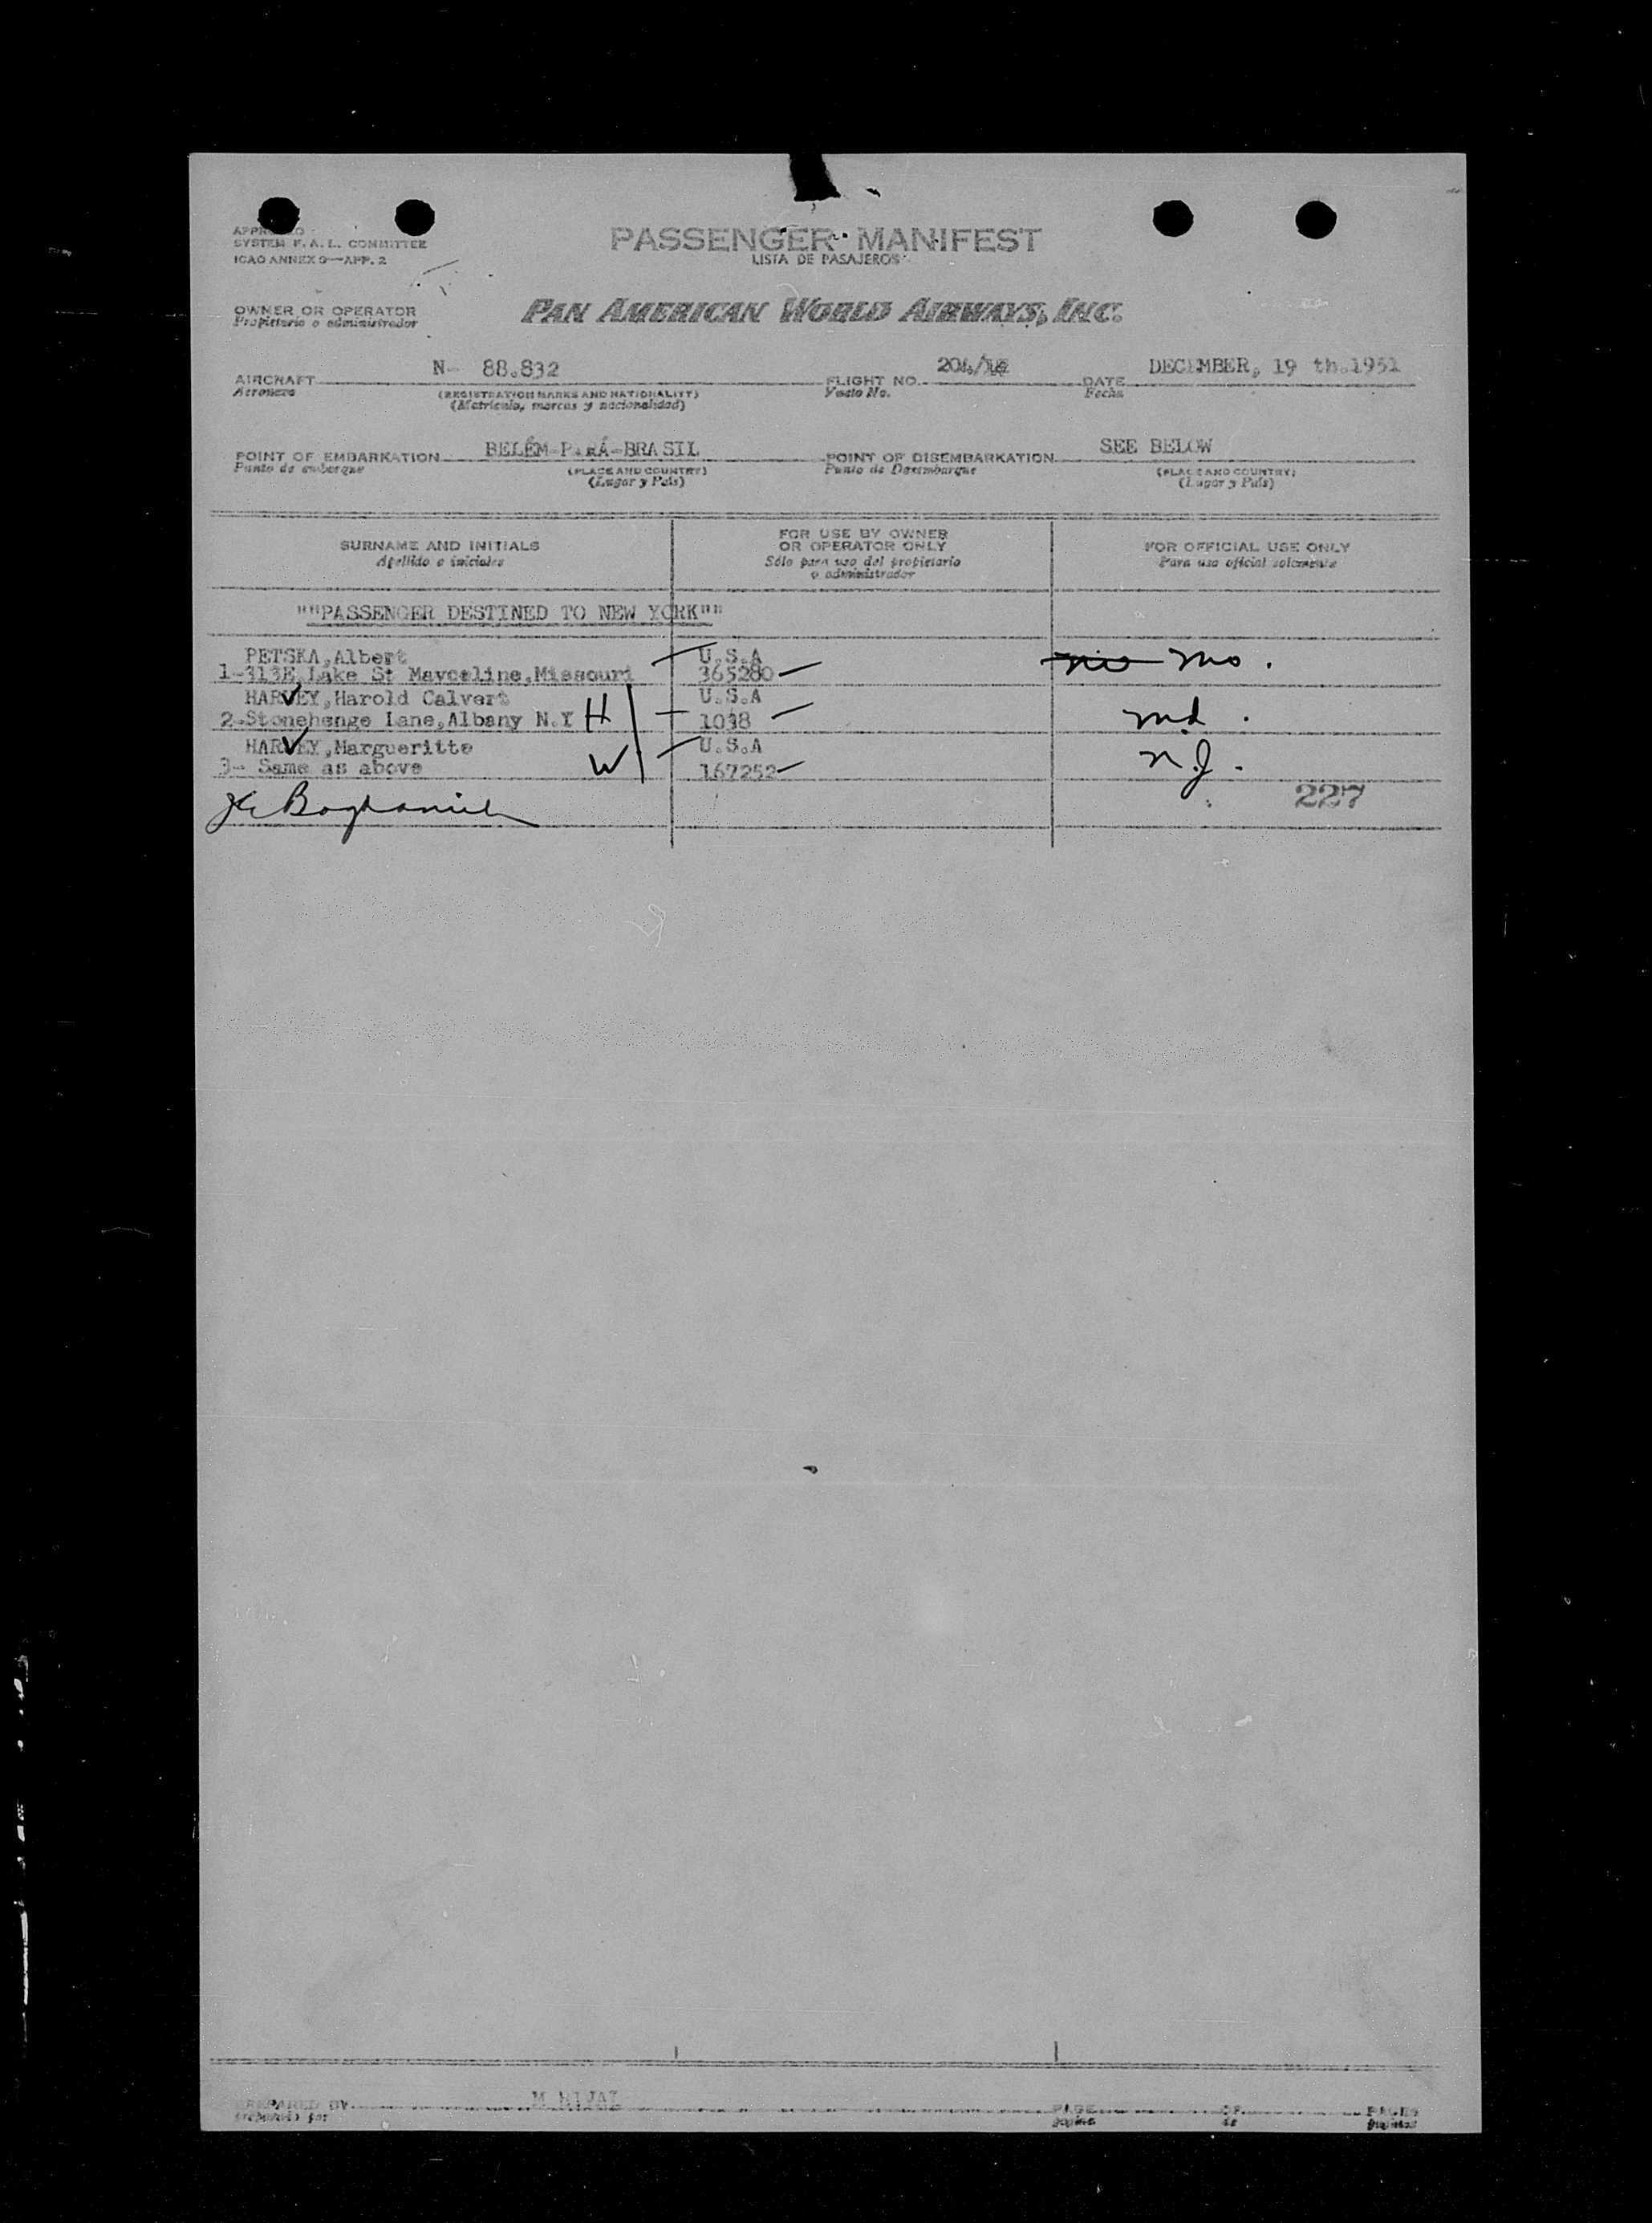 APPROVED
SYSTEM F. A. L. COMMITTEE
ICAO ANNEX 9—APP. 2
PASSENGER MANIFEST
LISTA DE PASAJEROS
OWNER OR OPERATOR
Propietario o administrador
PAN AMERICAN WORLD AIRWAYS, INC.
AIRCRAFT N- 88.832 FLIGHT NO. 204/ DATE DECEMBER, 19 th.1951
Aeronave (REGISTRATION MARKS AND NATIONALITY) Vuelo No. Fecha
(Matrícula, marcas y nacionalidad)
POINT OF EMBARKATION BELÉM-PARÁ-BRASIL POINT OF DISEMBARKATION SEE BELOW
Punto de embarque (PLACE AND COUNTRY) Punto de Desembarque (PLACE AND COUNTRY)
(Lugar y País) (Lugar y País)
SURNAME AND INITIALS FOR USE BY OWNER OR OPERATOR ONLY FOR OFFICIAL USE ONLY
Apellido e iniciales Sólo para uso del propietario o administrador Para uso oficial solamente
""PASSENGER DESTINED TO NEW YORK""
PETSKA,Albert U.S.A
1-313E Lake St Mavceline,Missouri 365280 Mo.
HARVEY,Harold Calvert U.S.A
2-Stonehenge Lane,Albany N.Y H 1038 Md.
HARVEY,Margueritte U.S.A
3- Same as above W 167252 N.J.
227
PREPARED BY PAGE OF PAGES
Preparado por página de páginas